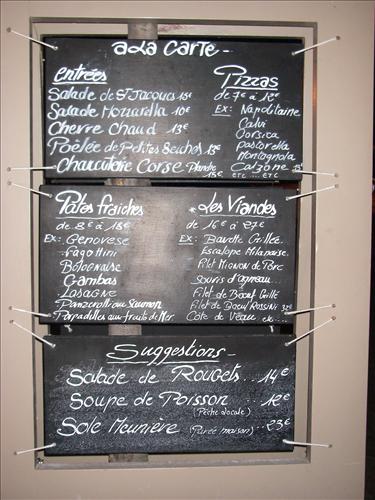 a La Carte
entrées
Salade de St Jacques 15€
Salade Mozzarella 10€
Chevre Chaud 13€
Poêlée de Petites Seiches 13€
Charcuterie Corse Planche 15€
Pizzas
de 7€ à 12€
Ex: Napolitaine
Calvi
Corsica
Pastorella
Montagnola
Calzone
etc... etc
Pates fraiches
de 8€ à 18€
Ex: Genovese
Bolognaise
Gambas
Lasagne
Panzerotti au Saumon
Parpadelles aux fruits de Mer
Les Viandes
de 16€ à 27€
Ex: Bavette Grillée
Escalope Milanaise
Filet Mignon de Porc
Souris d'agneau...
Filet de Boeuf Grillé
Filet de Boeuf Rossini
Côte de Veau etc...
Suggestions
Salade de Rougets... 14€
Soupe de Poisson... 12€
(Pêche locale)
Sole Meunière (Purée maison)... 23€